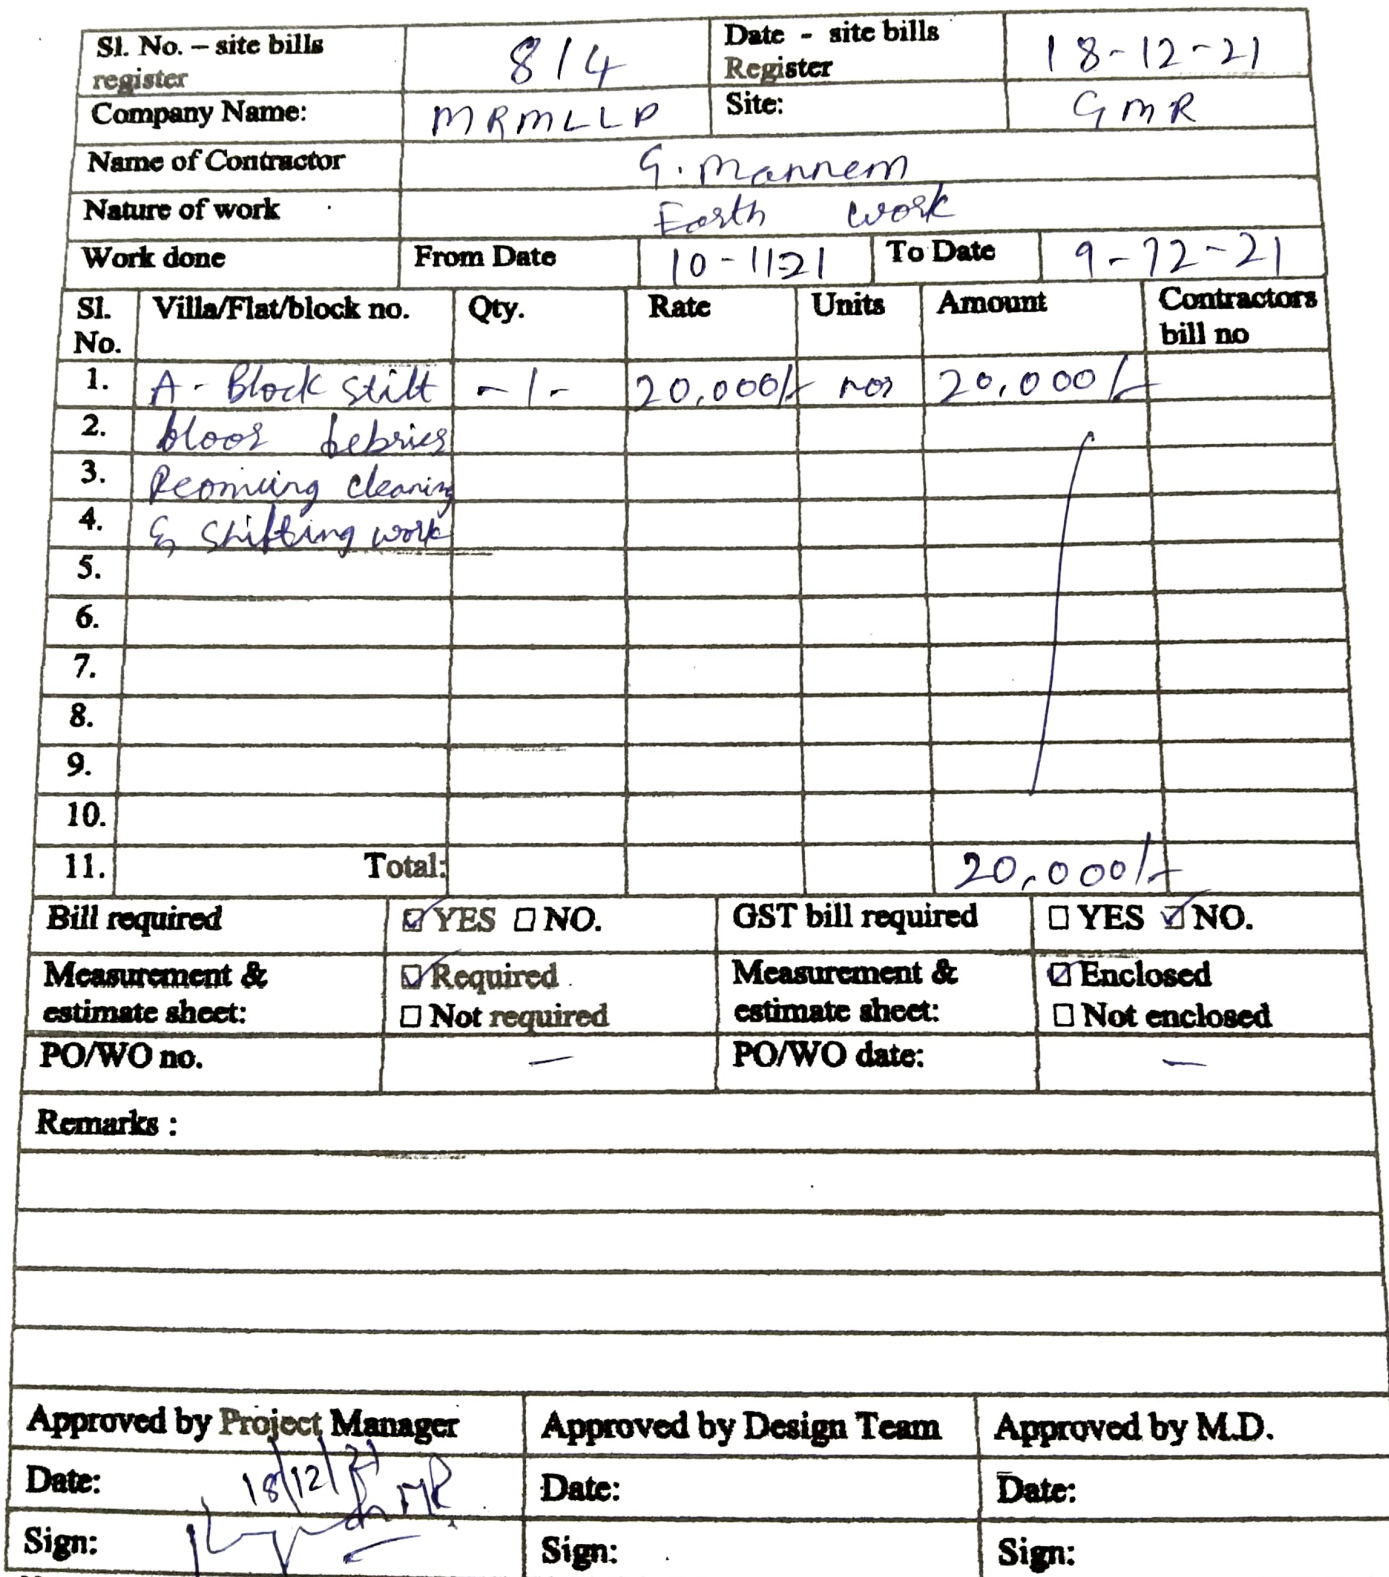 Sl. No. – site bills register 814 Date - site bills Register 18-12-21
Company Name: MRMLLP Site: GMR
Name of Contractor G. Mannem
Nature of work Earth work
Work done From Date 10-11-21 To Date 9-12-21
Sl. No. Villa/Flat/block no. Qty. Rate Units Amount Contractors bill no
1. A - Block stilt - 1 - 20,000/- nos 20,000/-
2. floor debries
3. Reomving cleaning
4. & Shifting work
5.
6.
7.
8.
9.
10.
11. Total: 20,000/-
Bill required ☑ YES ☐ NO. GST bill required ☐ YES ☑ NO.
Measurement & estimate sheet: ☑ Required ☐ Not required Measurement & estimate sheet: ☑ Enclosed ☐ Not enclosed
PO/WO no. — PO/WO date: —
Remarks :
Approved by Project Manager Approved by Design Team Approved by M.D.
Date: 18/12/21 Date: Date:
Sign: Sign: Sign: